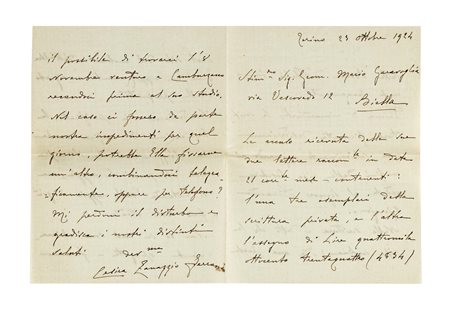 Torino 23 Ottobre 1924
Stim.mo Sg. Geom. Mario Garavoglia
via Vescovado 12
Biella
Le accuso ricevuta delle sue
due lettere raccom.te in data
21 corr.te mese - contenenti:
l'una tre esemplari della
scrittura privata, e l'altra
l'assegno di Lire quattromila
ottocento trentaquattro (4834)
il possibile di trovarci l'8
Novembre venturo a Camburzano
recandoci prima al suo studio.
Nel caso ci fossero da parte
nostra impedimenti per quel
giorno, potrebbe Ella fissarne
un'altro, combinandoci telegra
ficamente, oppure per telefono?
Mi perdoni il disturbo e
gradisca i nostri distinti
saluti
dev.ma
Cesira